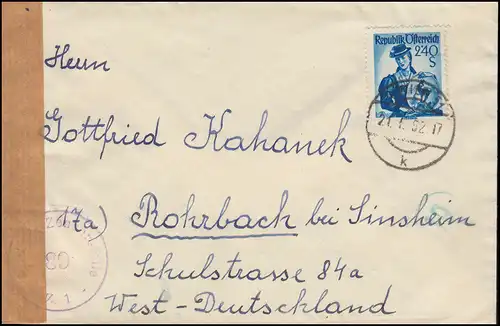 Republik Österreich
2'40
S
Herrn
WIEN
21.1.52.17
k
Gottfried Kahanek
(17a) Rohrbach bei Sinsheim
Schulstrasse 84a
West-Deutschland